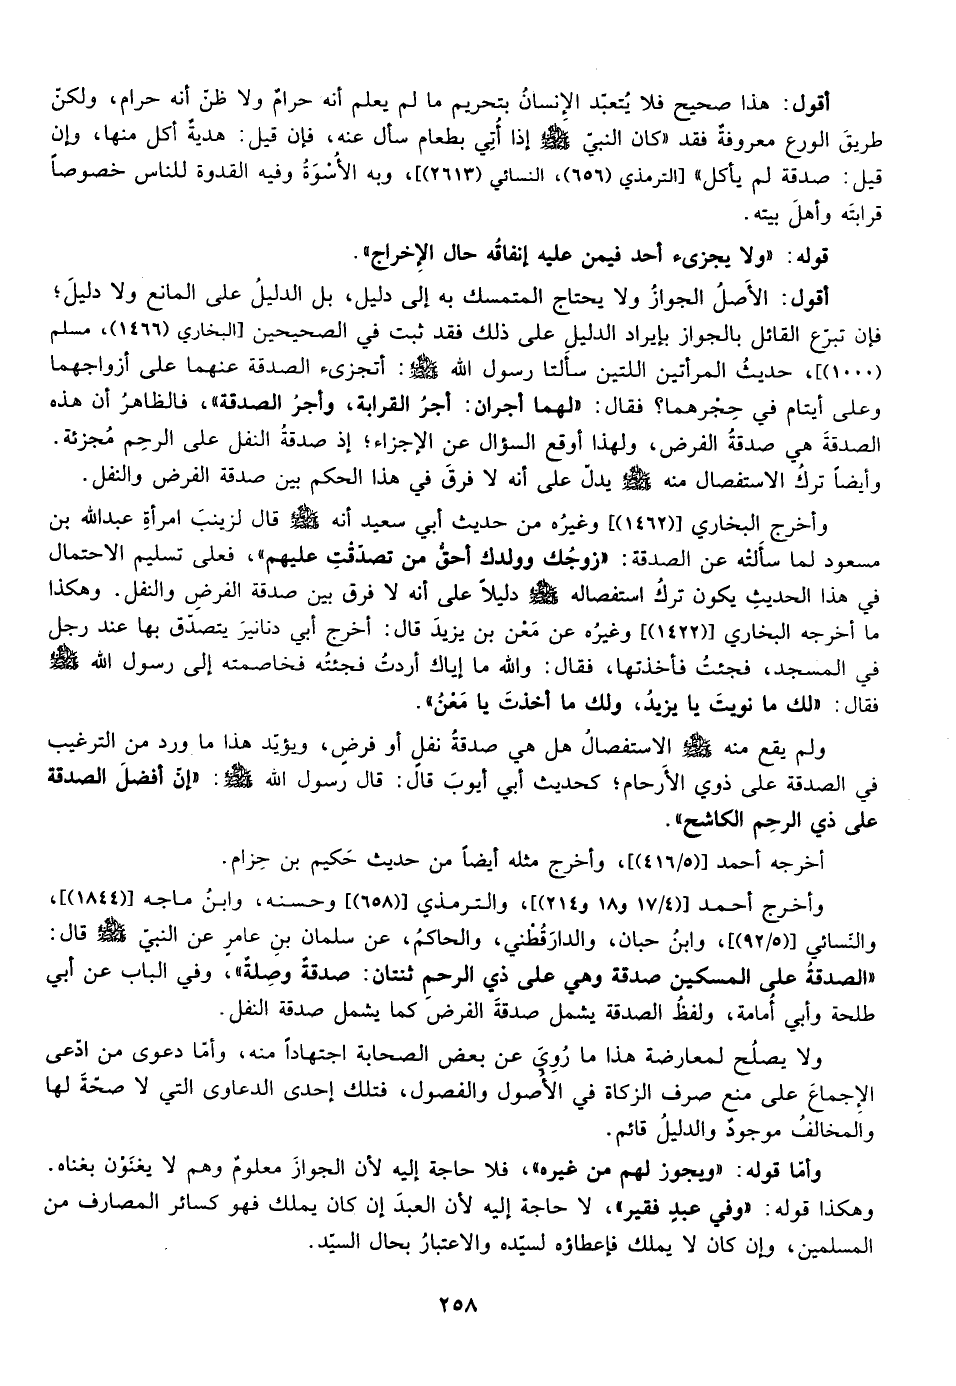 أقول: هذا صحيح فلا يُتعبّد الإِنسانُ بتحريم ما لم يعلم أنه حرامٌ ولا ظنّ أنه حرام، ولكنّ
طريقَ الورع معروفةٌ فقد «كان النبيّ ﷺ إذا أُتِي بطعام سأل عنه، فإن قيل: هديةٌ أكل منها، وإن
قيل: صدقة لم يأكل» [الترمذي (٦٥٦)، النسائي (٢٦١٣)]، وبه الأُسْوَةُ وفيه القدوة للناس خصوصاً
قرابتَه وأهلَ بيته.
قوله: «ولا يجزىء أحد فيمن عليه إنفاقُه حال الإِخراج».
أقول: الأَصلُ الجوازُ ولا يحتاج المتمسك به إلى دليل، بل الدليلُ على المانع ولا دليلَ؛
فإن تبرّع القائل بالجواز بإيراد الدليل على ذلك فقد ثبت في الصحيحين [البخاري (١٤٦٦)، مسلم
(١٠٠٠)]، حديثُ المرأتين اللتين سألتا رسول الله ﷺ: أتجزىء الصدقة عنهما على أزواجهما
وعلى أيتام في حِجْرهما؟ فقال: «لهما أجران: أجرُ القرابة، وأجرُ الصدقة»، فالظاهرُ أن هذه
الصدقةَ هي صدقةُ الفرض، ولهذا أوقع السؤال عن الإجزاء؛ إذ صدقةُ النفل على الرحِم مُجزئة.
وأيضاً تركُ الاستفصال منه ﷺ يدلّ على أنه لا فرقَ في هذا الحكم بين صدقة الفرض والنفل.
وأخرج البخاري [(١٤٦٢)] وغيرُه من حديث أبي سعيد أنه ﷺ قال لزينبَ امرأةِ عبدالله بن
مسعود لما سألتْه عن الصدقة: «زوجُك وولدك أحقُّ من تصدّقْتِ عليهم»، فعلى تسليم الاحتمال
في هذا الحديثِ يكون تركُ استفصاله ﷺ دليلاً على أنه لا فرق بين صدقة الفرضِ والنفل. وهكذا
ما أخرجه البخاري [(١٤٢٢)] وغيرُه عن مَعْن بن يزيدَ قال: أخرج أبي دنانيرَ يتصدّق بها عند رجل
في المسجد، فجئتُ فأخذتها، فقال: والله ما إياك أردتُ فجئتُه فخاصمته إلى رسول الله ﷺ
فقال: «لك ما نويتَ يا يزيدُ، ولك ما أخذتَ يا مَعْنُ».
ولم يقع منه ﷺ الاستفصالُ هل هي صدقةُ نفلٍ أو فرضٍ، ويؤيّد هذا ما ورد من الترغيب
في الصدقة على ذوي الأَرحام؛ كحديث أبي أيوبَ قال: قال رسول الله ﷺ: «إنّ أفضلَ الصدقة
على ذي الرحِم الكاشح».
أخرجه أحمد [(٤١٦/٥)]، وأخرج مثله أيضاً من حديث حَكيم بن حِزام.
وأخرج أحمد [(١٧/٤ و١٨ و٢١٤)]، والترمذي [(٦٥٨)] وحسنه، وابنُ ماجه [(١٨٤٤)]،
والنّسائي [(٩٢/٥)]، وابنُ حبان، والدارَقُطْني، والحاكمُ، عن سلمان بنِ عامرٍ عن النبيّ ﷺ قال:
«الصدقةُ على المسكين صدقة وهي على ذي الرحمِ ثنتان: صدقةٌ وصِلةٌ»، وفي الباب عن أبي
طلحة وأبي أُمامة، ولفظُ الصدقة يشمل صدقةَ الفرض كما يشمل صدقة النفل.
ولا يصلُح لمعارضة هذا ما رُوِيَ عن بعض الصحابة اجتهاداً منه، وأمّا دعوى من ادّعى
الإجماعَ على منع صرف الزكاة في الأُصول والفصول، فتلك إحدى الدعاوى التي لا صحّةَ لها
والمخالفُ موجودٌ والدليلُ قائم.
وأمّا قوله: «ويجوز لهم من غيره»، فلا حاجة إليه لأن الجوازَ معلومٌ وهم لا يغنَوْن بغناه.
وهكذا قوله: «وفي عبدٍ فقير»، لا حاجة إليه لأن العبدَ إن كان يملك فهو كسائر المصارف من
المسلمين، وإن كان لا يملك فإعطاؤه لسيّده والاعتبارُ بحال السيّد.
٢٥٨